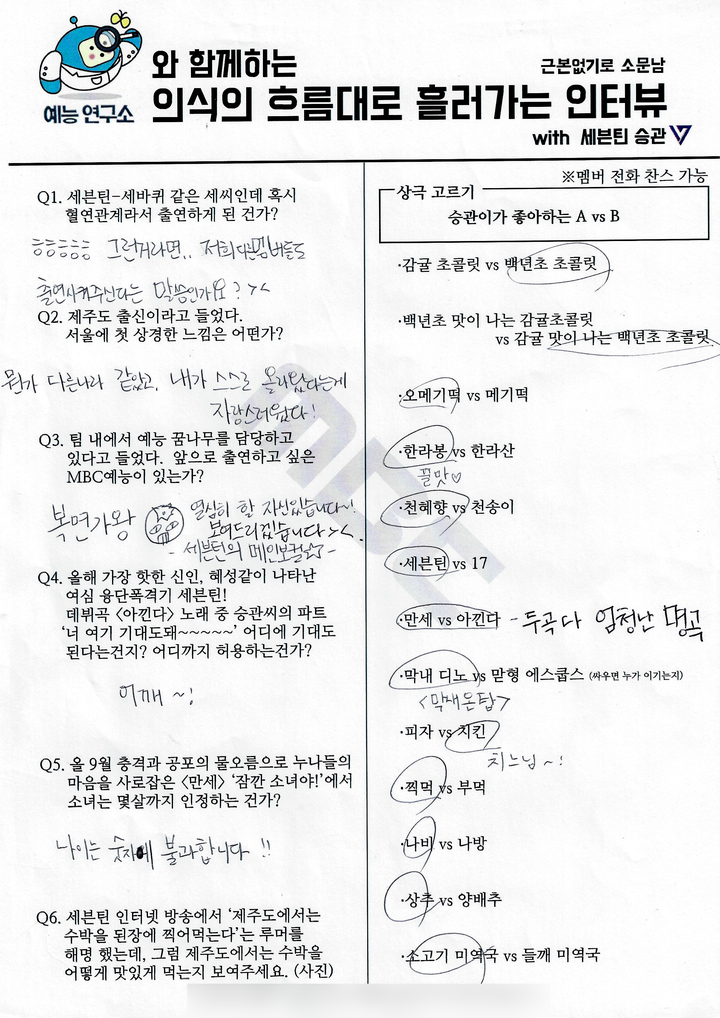 예능 연구소
와 함께하는
근본없기로 소문남
의식의 흐름대로 흘러가는 인터뷰
with 세븐틴 승관
Q1. 세븐틴-세바퀴 같은 세씨인데 혹시
혈연관계라서 출연하게 된 건가?
ㅎㅎㅎㅎㅎ 그런거라면.. 저희 다른멤버들도
출연시켜주신다는 말씀인가요? ><
Q2. 제주도 출신이라고 들었다.
서울에 첫 상경한 느낌은 어떤가?
뭔가 다른나라 같았고, 내가 스스로 올라왔다는게
자랑스러웠다!
Q3. 팀 내에서 예능 꿈나무를 담당하고
있다고 들었다. 앞으로 출연하고 싶은
MBC예능이 있는가?
복면가왕
열심히 할 자신있습니다~!
보여드리겠습니다 ><.
- 세븐틴의 메인보컬 -
Q4. 올해 가장 핫한 신인, 혜성같이 나타난
여심 융단폭격기 세븐틴!
데뷔곡 <아낀다> 노래 중 승관씨의 파트
'너 여기 기대도돼~~~~~' 어디에 기대도
된다는건지? 어디까지 허용하는건가?
어깨 ~!
Q5. 올 9월 충격과 공포의 물오름으로 누나들의
마음을 사로잡은 <만세> '잠깐 소녀야!'에서
소녀는 몇살까지 인정하는 건가?
나이는 숫자에 불과합니다 !!
Q6. 세븐틴 인터넷 방송에서 '제주도에서는
수박을 된장에 찍어먹는다'는 루머를
해명 했는데, 그럼 제주도에서는 수박을
어떻게 맛있게 먹는지 보여주세요. (사진)
※멤버 전화 찬스 가능
상극 고르기
승관이가 좋아하는 A vs B
·감귤 초콜릿 vs 백년초 초콜릿
·백년초 맛이 나는 감귤초콜릿
vs 감귤 맛이 나는 백년초 초콜릿
·오메기떡 vs 메기떡
·한라봉 vs 한라산
꿀맛♡
·천혜향 vs 천송이
·세븐틴 vs 17
·만세 vs 아낀다 - 두곡 다 엄청난 명곡
·막내 디노 vs 맏형 에스쿱스 (싸우면 누가 이기는지)
<막내온탑>
·피자 vs 치킨
치느님 ~!
·찍먹 vs 부먹
·나비 vs 나방
·상추 vs 양배추
·소고기 미역국 vs 들깨 미역국
MBC